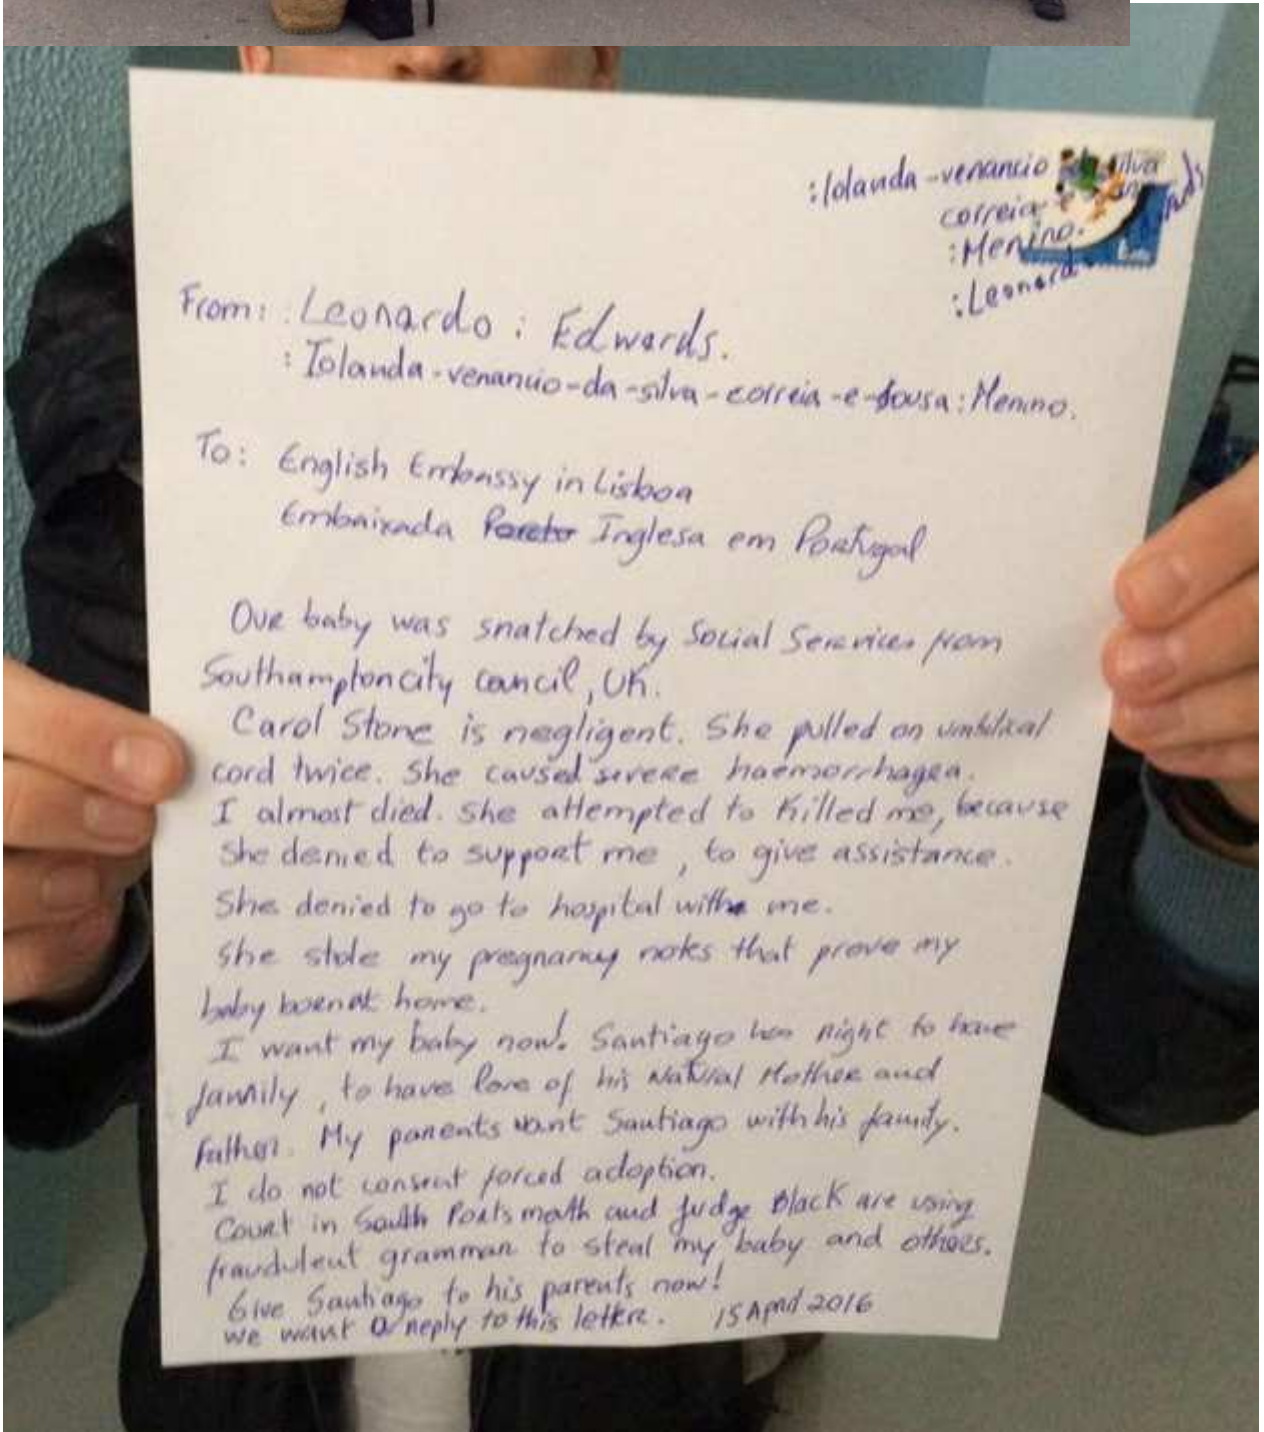 :Iolanda-venancio silva
correia e
:Menino.
:Leonard
From: :Leonardo : Edwards.
:Iolanda-venancio-da-silva-correia-e-sousa:Menino.
To: English Embassy in Lisboa
Embaixada Inglesa em Portugal
Our baby was snatched by Social Services from
Southampton city council, UK.
Carol Stone is negligent. She pulled on umbilical
cord twice. She caused severe haemorrhagea.
I almost died. She attempted to killed me, because
she denied to support me, to give assistance.
She denied to go to hospital with me.
She stole my pregnancy notes that prove my
baby born at home.
I want my baby now! Santiago has right to have
family, to have love of his Natural Mother and
father. My parents want Santiago with his family.
I do not consent forced adoption.
Court in South Portsmoth and Judge Black are using
fraudulent grammar to steal my baby and others.
Give Santiago to his parents now!
We want a reply to this letter. 15 April 2016